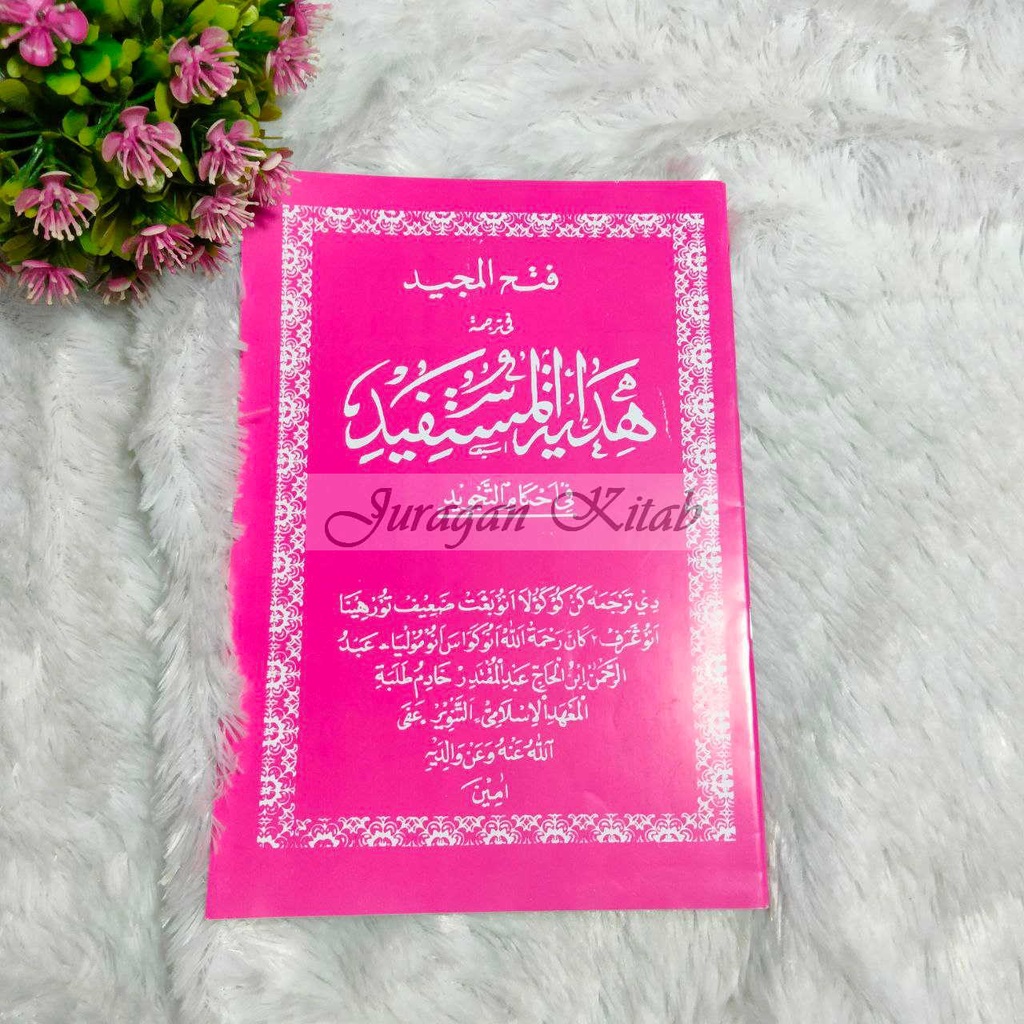 فتح المجيد
في ترجمة
هِدَايَةُ الْمُسْتَفِيْدِ
فِيْ اَحْكَامِ التَّجْوِيْدِ
Juragan Kitab
دِيْ تَرْجَمَهْ كَنْ كَوْلَا اَنُوْ بَڠَتْ ضَعِيْف تُوْر هِيْنَا
اَنُوْ ڠَرَفْ٢ كَانَ رَحْمَةْ اللّٰه اَنُوْ كَوَاسَ اَنُوْ مُوْلْيَا، عَبْدُ
الرَّحْمٰنْ اِبْنُ الْحَاجّ عَبْدِ الْمُقْتَدِرْ خَادِمُ طَلَبَةِ
الْمَعْهَدِ الْاِسْلَامِيْ، اَلتَّنْوِيْرْ، عَفَى
اَللّٰهُ عَنْهُ وَعَنْ وَالِدَيْهِ
اٰمِيْنَ